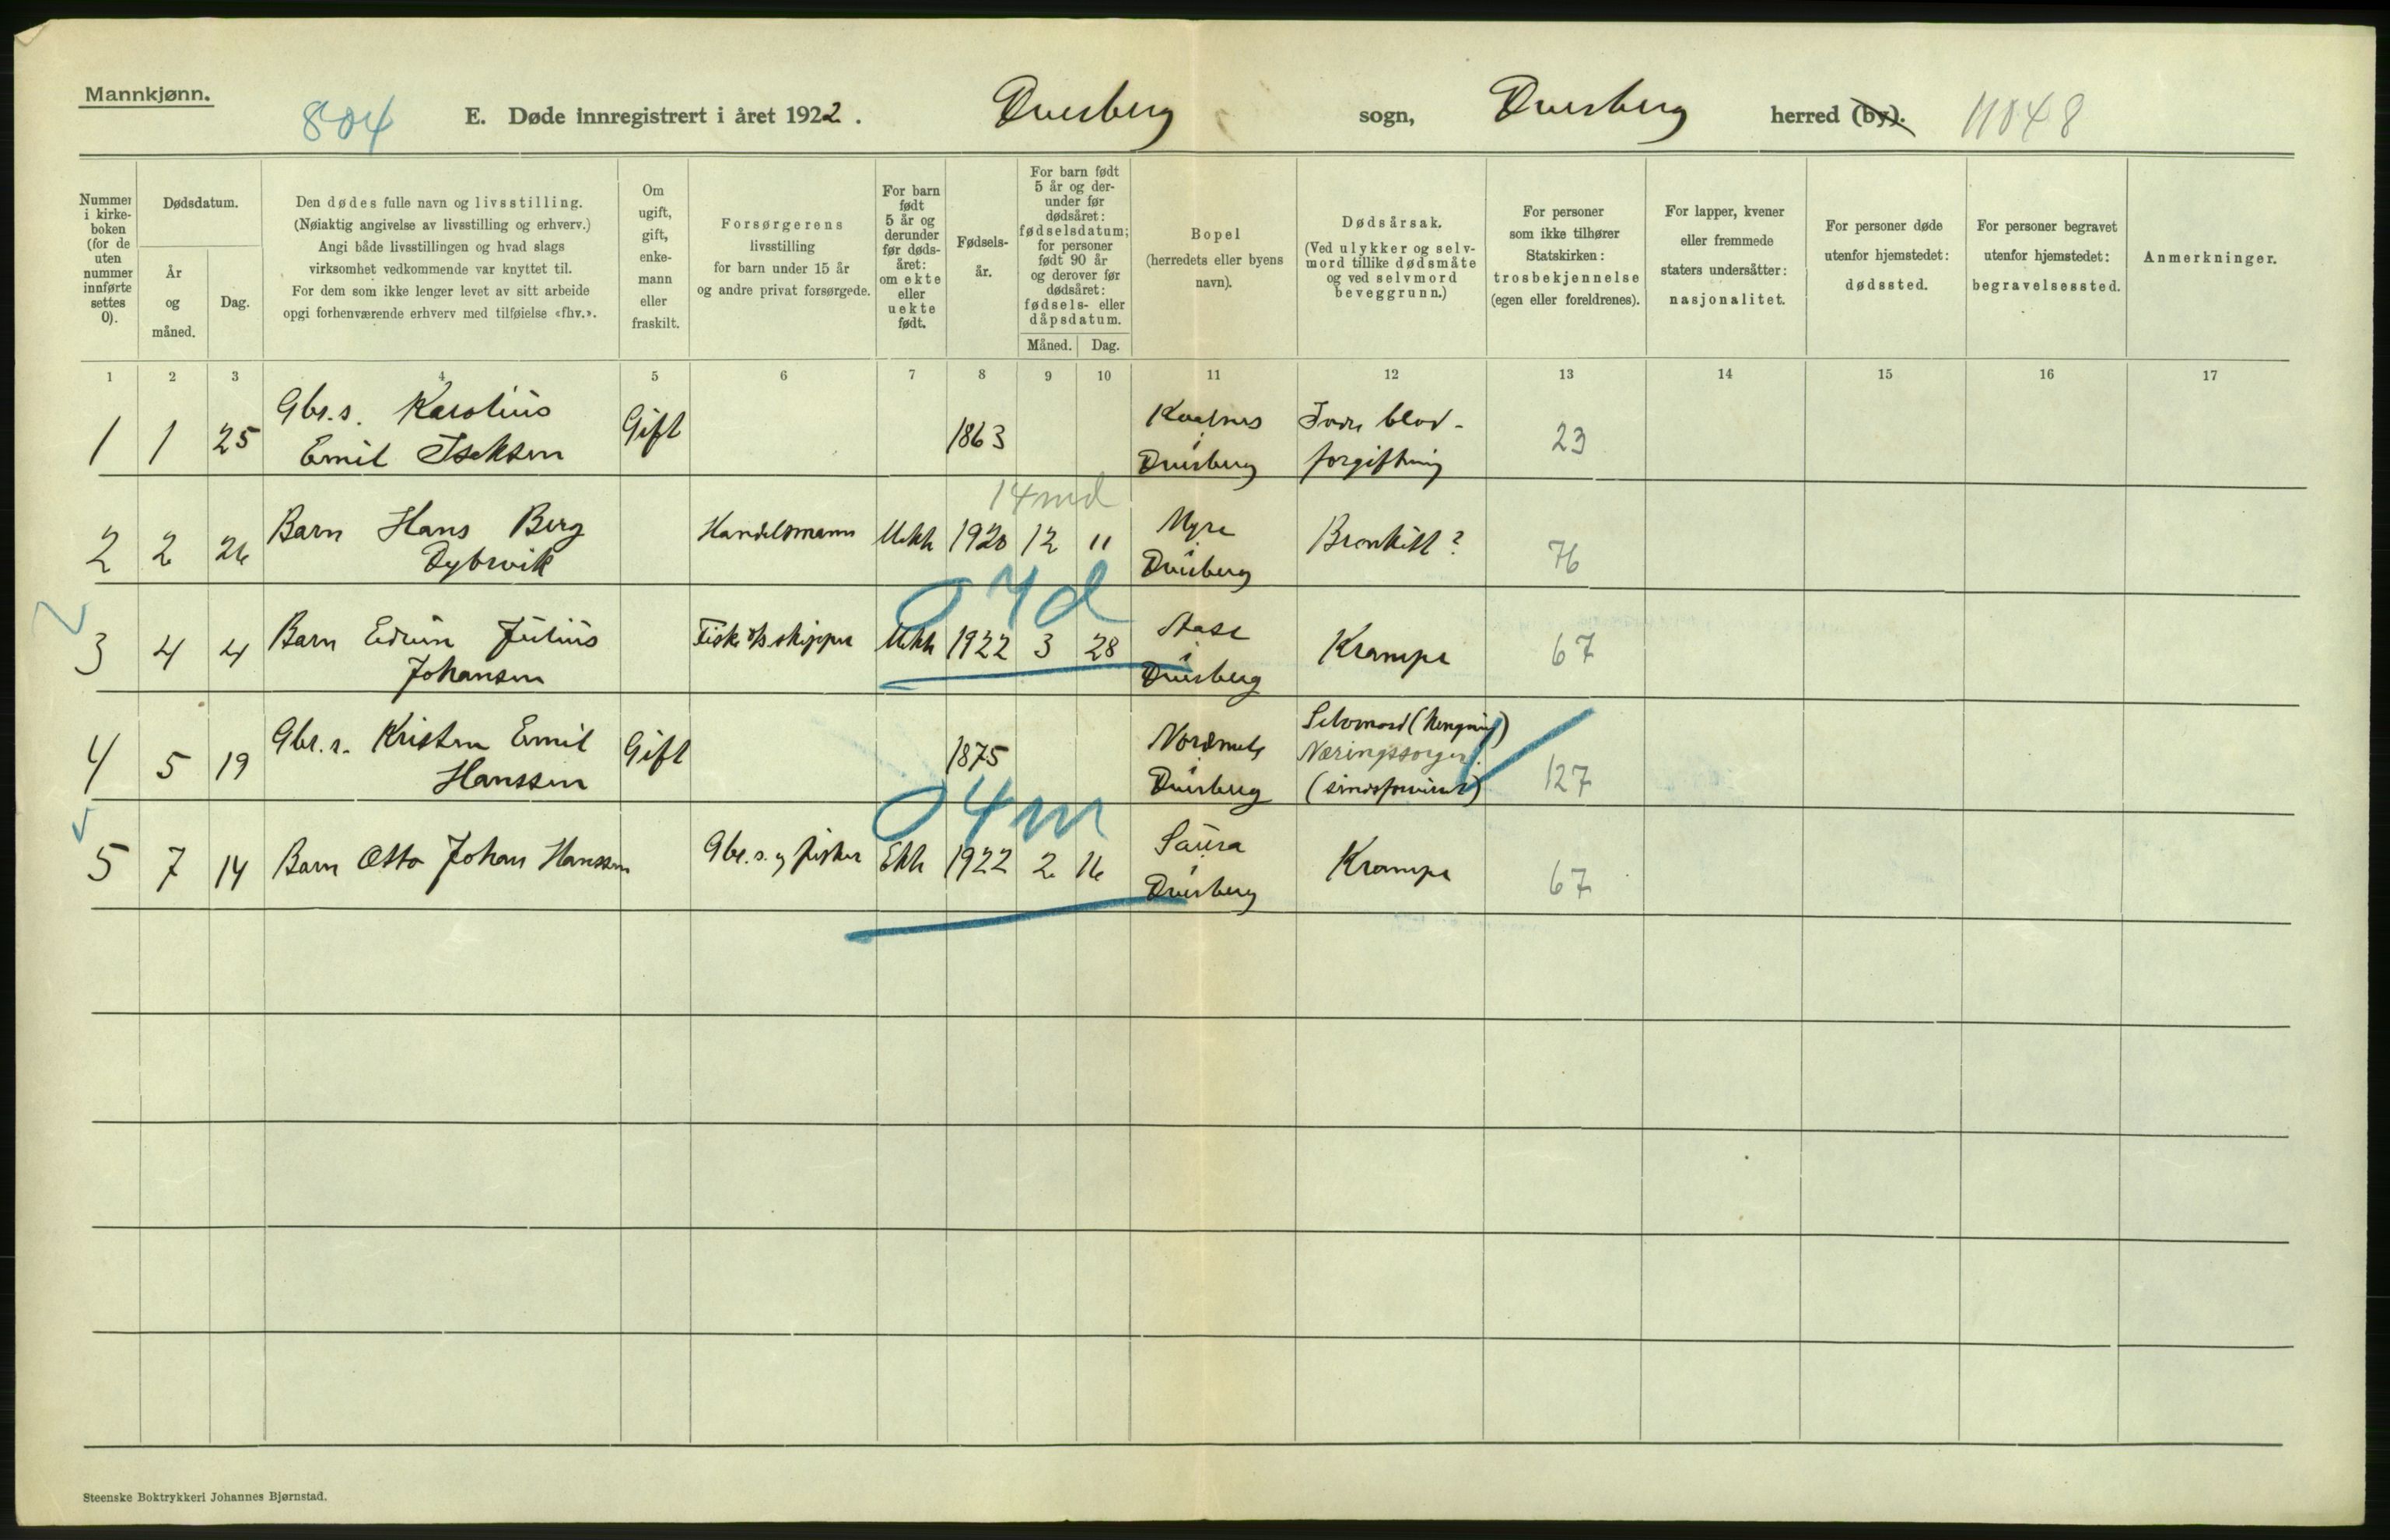 Mannkjønn.
804
E. Døde innregistrert i året 1922.
Dverberg sogn, Dverberg herred (by). 11048
Nummer i kirke-boken (for de uten nummer innførte settes 0).
Dødsdatum.
År og måned.
Dag.
Den dødes fulle navn og livsstilling.
(Nøiaktig angivelse av livsstilling og erhverv.)
Angi både livsstillingen og hvad slags
virksomhet vedkommende var knyttet til.
For dem som ikke lenger levet av sitt arbeide
opgi forhenværende erhverv med tilføielse «fhv.».
Om ugift, gift, enke-mann eller fraskilt.
Forsørgerens
livsstilling
for barn under 15 år
og andre privat forsørgede.
For barn født 5 år og derunder før døds-året: om ekte eller uekte født.
Fødsels-år.
For barn født 5 år og der-under før dødsåret: fødselsdatum; for personer født 90 år og derover før dødsåret: fødsels- eller dåpsdatum.
Måned. Dag.
Bopel
(herredets eller byens
navn).
Dødsårsak.
(Ved ulykker og selv-
mord tillike dødsmåte
og ved selvmord
beveggrunn.)
For personer
som ikke tilhører
Statskirken:
trosbekjennelse
(egen eller foreldrenes).
For lapper, kvener
eller fremmede
staters undersåtter:
nasjonalitet.
For personer døde
utenfor hjemstedet:
dødssted.
For personer begravet
utenfor hjemstedet:
begravelsessted.
Anmerkninger.
1 2 3 4 5 6 7 8 9 10 11 12 13 14 15 16 17
Gbr.s. Karolius
Emil Iseksen
1 1 25 Gift 1863
Dverberg
Indre blod-
forgiftning
23
14 md
Barn Hans Berg
Dybvik
2 2 26 Handelsmann Uekte 1920 12 11
Myre
Dverberg
Bronkitt?
76
7 d
Barn Edvin Julius
Johansen
3 4 4 Fisker skipper Uekte 1922 3 28
Aase
i
Dverberg
Krampe
67
Gbr.s. Kristen Emil
Hanssen
4 5 19 Gift 1875
Nordmela
Dverberg
Selvmord (hengning)
Næringssorger.
127
4 m
5 7 14 Barn Otto Johan Hanssen Gbr.s. og fisker Ekte 1922 2 16
Saura
i
Dverberg
Krampe
67
Steenske Boktrykkeri Johannes Bjørnstad.